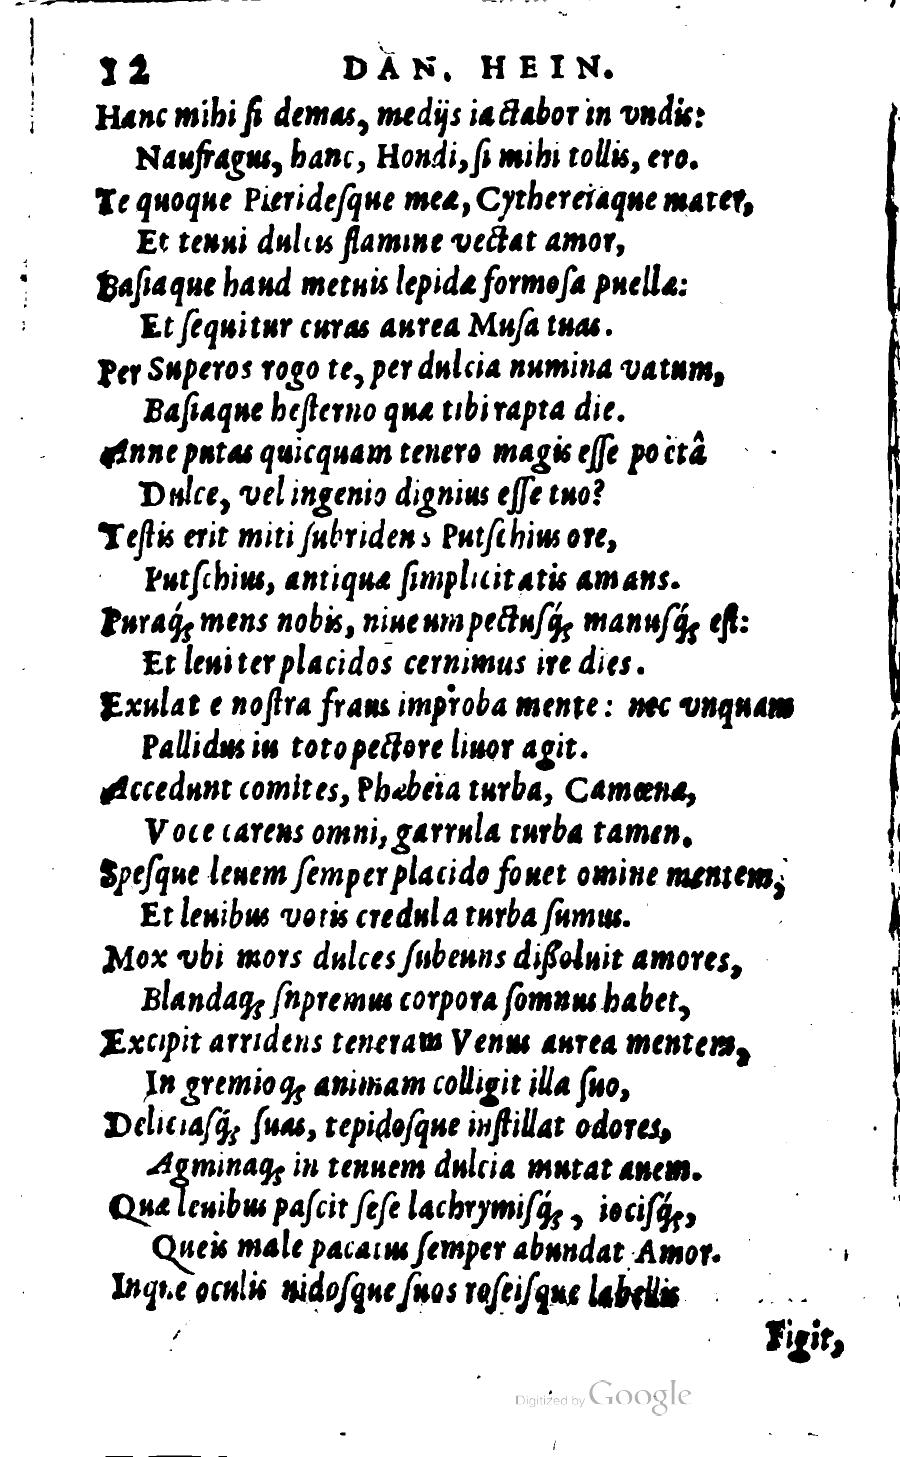 12 DAN. HEIN.
Hanc mihi ſi demas, medijs iactabor in vndis:
Naufragus, hanc, Hondi, ſi mihi tollis, ero.
Te quoque Pieridesſque meæ, Cythereïaque mater,
Et tenui dulcis flamine vectat amor,
Baſiaque haud metuis lepidæ formoſa puellæ:
Et ſequitur curas aurea Muſa tuas.
Per Superos rogo te, per dulcia numina vatum,
Baſiaque heſterno quæ tibi rapta die.
Anne putas quicquam tenero magis eſſe poëtâ
Dulce, vel ingenio dignius eſſe tuo?
Teſtis erit miti ſubridens Putſchius ore,
Putſchius, antiquæ ſimplicitatis amans.
Puraq́; mens nobis, niueum pectuſq́; manuſq́; eſt:
Et leuiter placidos cernimus ire dies.
Exulat e noſtra fraus improba mente: nec vnquam
Pallidus in toto pectore liuor agit.
Accedunt comites, Phœbeia turba, Camœnæ,
Voce carens omni, garrula turba tamen.
Speſque leuem ſemper placido fouet omine mentem,
Et leuibus votis credula turba ſumus.
Mox vbi mors dulces ſubeuns dißoluit amores,
Blandaq; ſupremus corpora ſomnus habet,
Excipit arridens teneram Venus aurea mentem,
In gremioq; animam colligit illa ſuo,
Deliciaſq́; ſuas, tepidoſque inſtillat odores,
Agminaq; in tenuem dulcia mutat auem.
Quæ leuibus paſcit ſeſe lachrymiſq́;, iociſq́;,
Queis male pacatus ſemper abundat Amor.
Inque oculis nidoſque ſuos roſeiſque labellis
Figit,
Digitized by Google